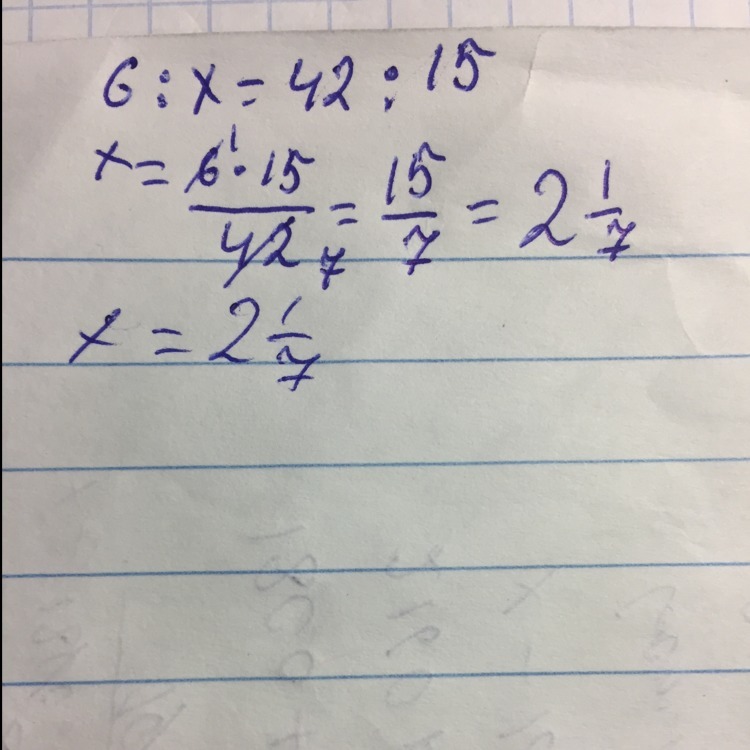 6 : x = 42 : 15
x = 6¹·15/42₇ = 15/7 = 2 1/7
x = 2 1/7